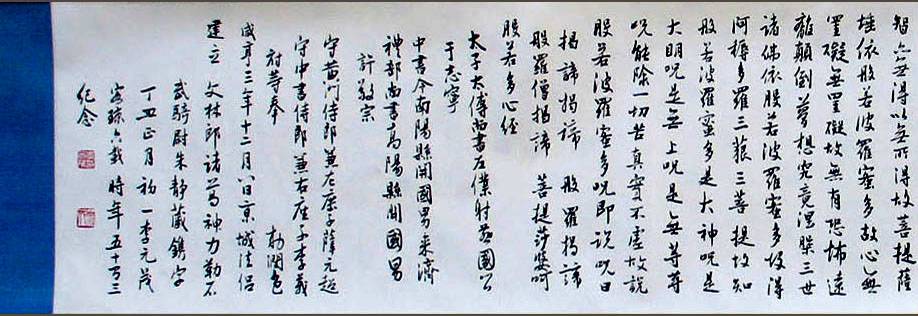 智亦無得以無所得故菩提薩
埵依般若波羅蜜多故心無
罣礙無罣礙故無有恐怖遠
離顛倒夢想究竟涅槃三世
諸佛依般若波羅蜜多故得
阿耨多羅三藐三菩提故知
般若波羅蜜多是大神咒是
大明咒是無上咒是無等等
咒能除一切苦真實不虛故說
般若波羅蜜多咒即說咒曰
揭諦揭諦 般羅揭諦
般羅僧揭諦 菩提莎婆呵
般若多心經
太子太傅尚書左僕射燕國公
于志寧
中書令南陽縣開國男來濟
禮部尚書高陽縣開國男
許敬宗
守黃門侍郎兼左庶子薛元超
守中書侍郎兼右庶子李義
府等奉 勅潤色
咸亨三年十二月八日京城法侶
建立 文林郎諸葛神力勒石
武騎尉朱靜藏鐫字
丁丑正月初一李元茂
時年五十三
紀念